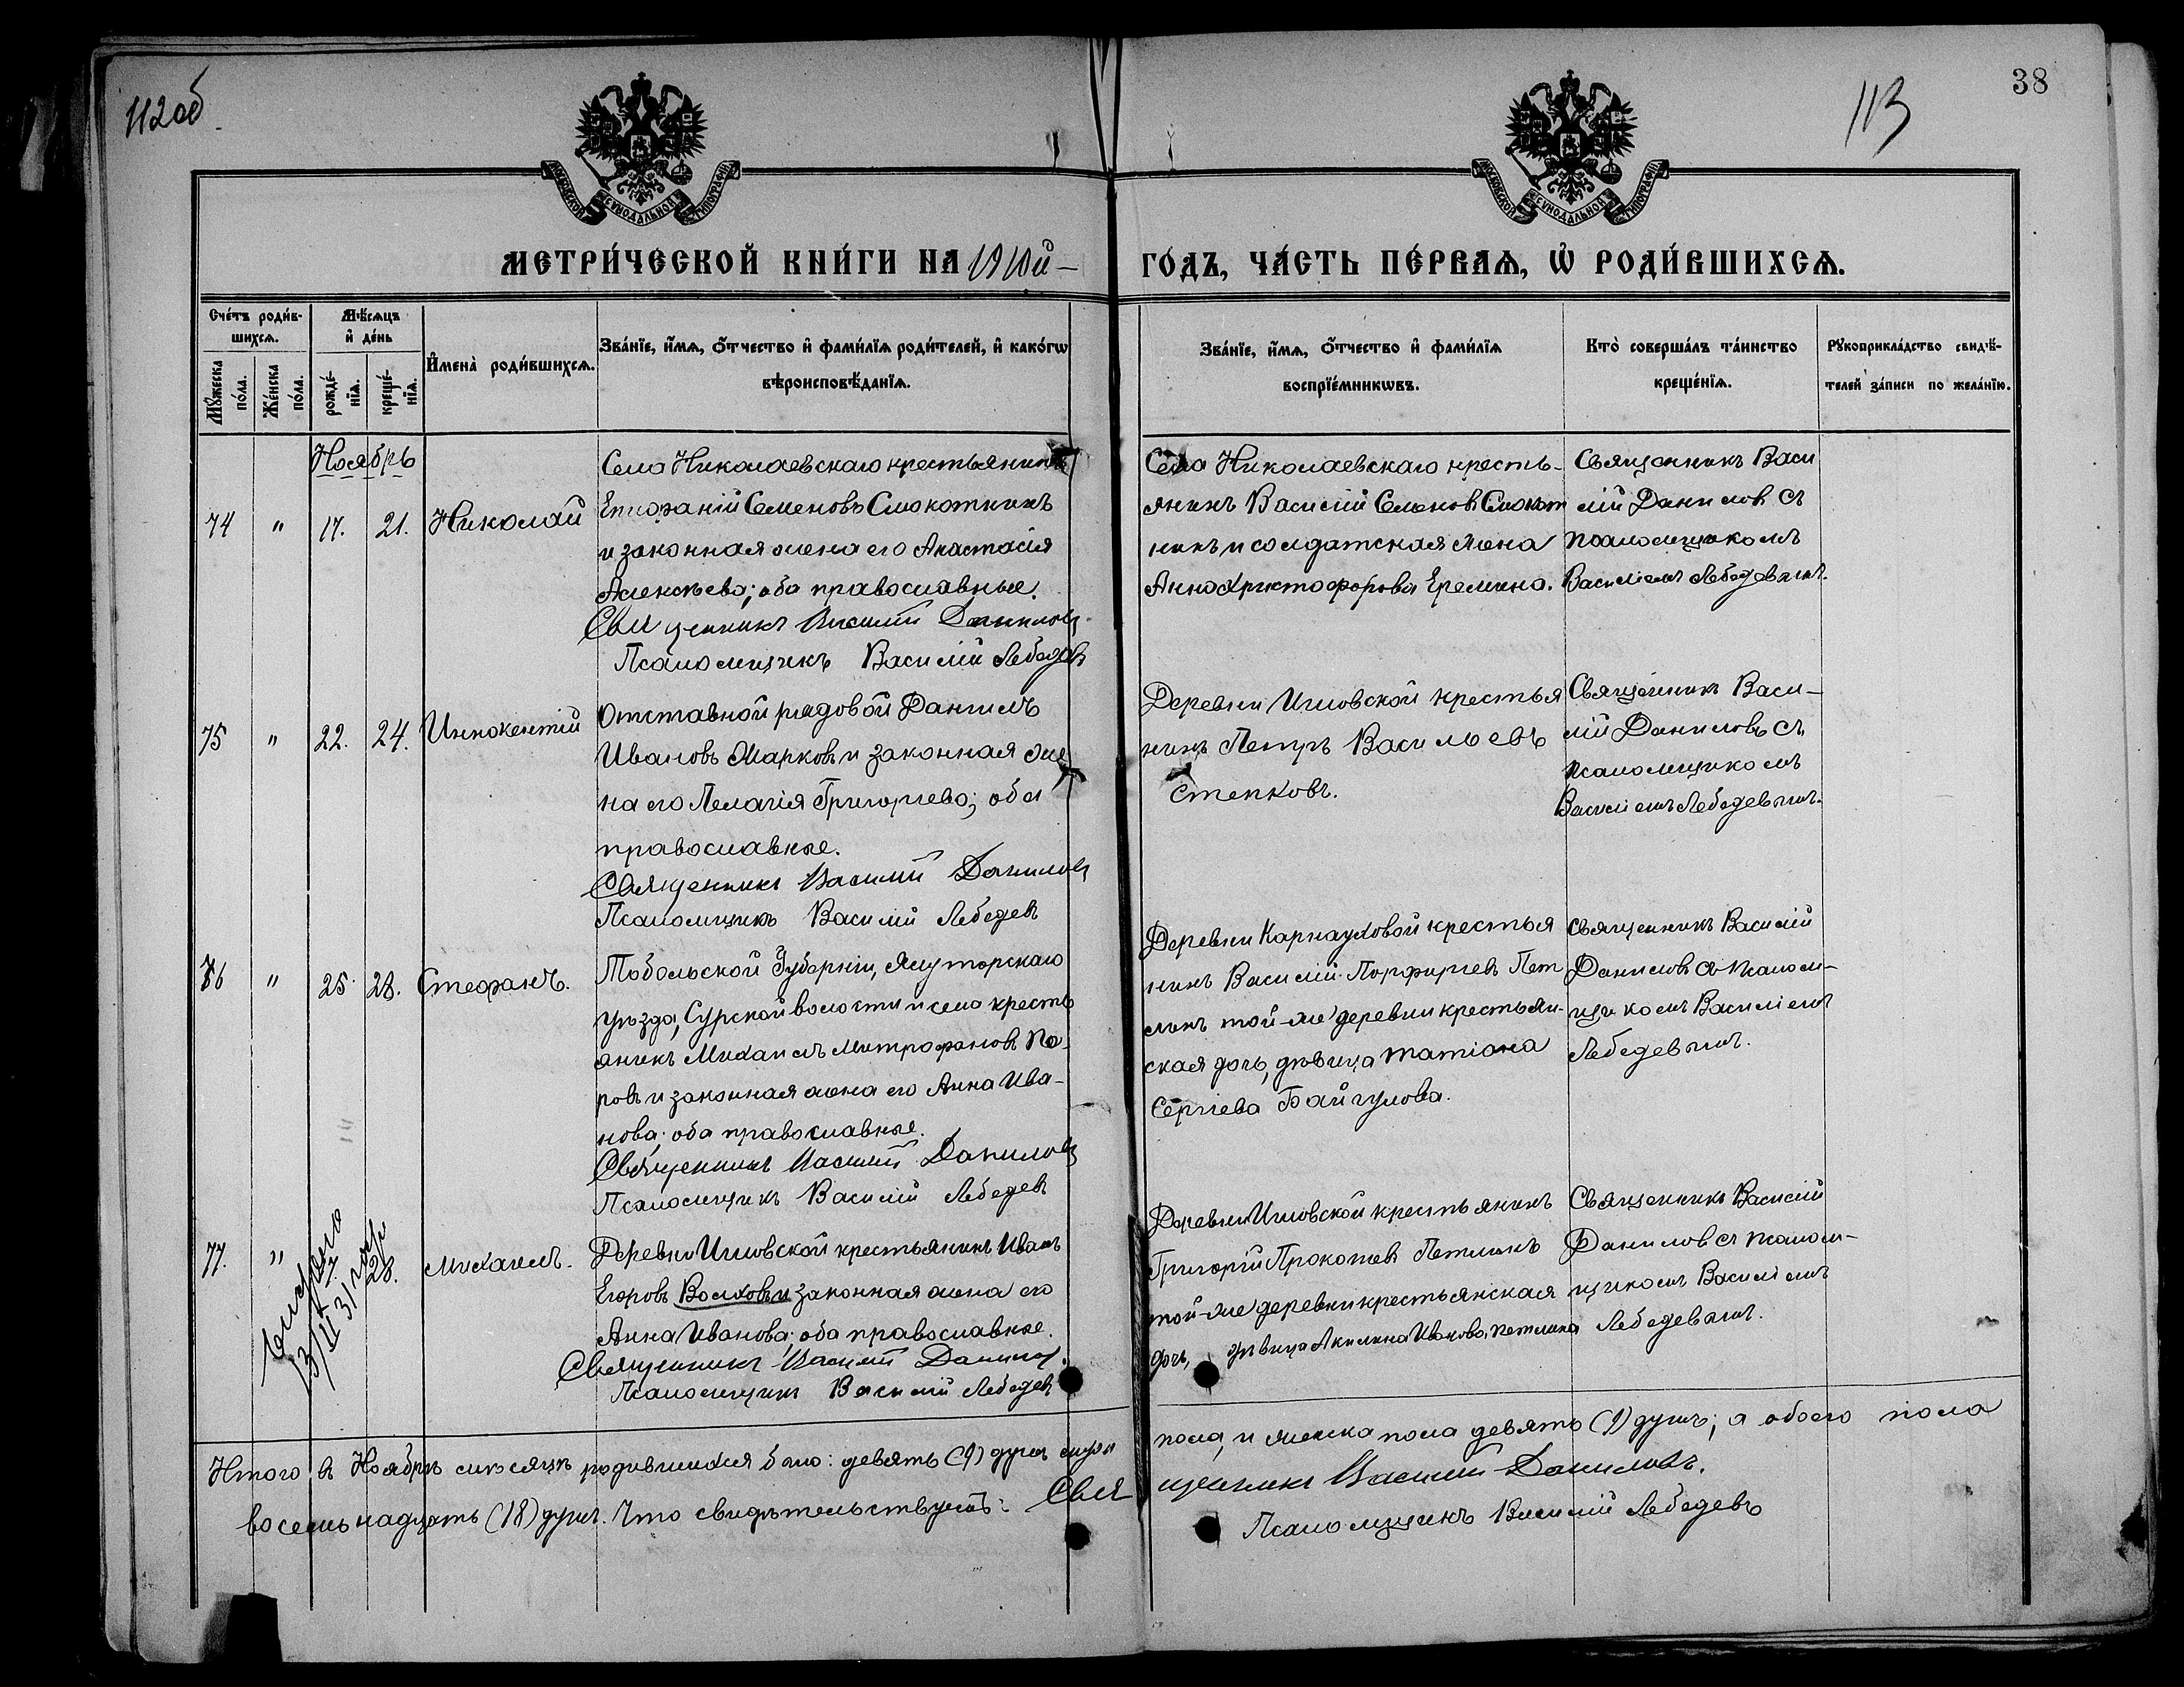 112об
38
113
МОСКОВСКОЙ СѴНОДАЛЬНОЙ ТИПОГРАФІИ
МОСКОВСКОЙ СѴНОДАЛЬНОЙ ТИПОГРАФІИ
МЕТРИ́ЧЕСКОЙ КНИ́ГИ НА 1910й –
ГО́ДЪ, ЧА́СТЬ ПЕ́РВАѦ, Ѡ҆ РОДИ́ВШИХСѦ.
Сче́тъ роди́в-
шихсѧ.
Мꙋ́жеска по́ла.
Же́нска по́ла.
Мѣ́сѧцъ
и҆ де́нь
рожде́-нїѧ.
креще́-нїѧ.
И҆мена̀ роди́вшихсѧ.
Зва́нїе, и҆́мѧ, ѻ҆́тчество и҆ фами́лїѧ роди́телей, и҆ како́гѡ
вѣроисповѣ́данїѧ.
Зва́нїе, и҆́мѧ, ѻ҆́тчество и҆ фами́лїѧ
воспрїе́мникѡвъ.
Кто̀ соверша́лъ та́инство
креще́нїѧ.
Рꙋкоприкла́дство свидѣ́-
телей за́писи по жела́нїю.
Ноябрь
74 " 17. 21. Николай
Села Николаевскаго крестьянинъ
Епифаній Семеновъ Смокотнинъ
и законная жена его Анастасія
Алексѣева; оба православные.
Священникъ Василій Даниловъ
Псаломщикъ Василій Лебедевъ
Села Николаевскаго кресть-
янинъ Василій Семеновъ Смокот
нинъ и солдатская жена
Анна Христофорова Еремина.
Священникъ Васи
лій Даниловъ съ
псаломщикомъ
Василіемъ Лебедевымъ.
75 " 22. 24. Иннокентій
Отставной рядовой Даніилъ
Ивановъ Марковъ и законная же
на его Пелагія Григорьева; оба
православные.
Священникъ Василій Даниловъ
Псаломщикъ Василій Лебедевъ
Деревни Игловской крестья
нинъ Петръ Васильевъ
Стенковъ.
Священникъ Васи-
лій Даниловъ съ
псаломщикомъ
Василіемъ Лебедевымъ.
76 " 25. 28. Стефанъ.
Тобольской Губерніи, Ялуторскаго
уѣзда, Сурской волости и села кресть
янинъ Михаилъ Митрофановъ По-
ровъ и законная жена его Анна Ива-
нова; оба православные.
Священникъ Василій Даниловъ
Псаломщикъ Василій Лебедевъ
Деревни Карнауховой крестья
нинъ Василій Порфирьевъ Пет
линъ той-же деревни крестьян-
ская дочь, дѣвица Татіана
Сергіева Байгулова.
Священникъ Василій
Даниловъ съ псалом-
щикомъ Василіемъ
Лебедевымъ.
77. " 28. Михаилъ.
13/II 31
Деревни Игловской крестьянинъ Иванъ
Егоровъ Волховъ и законная жена его
Анна Иванова; оба православные.
Священникъ Василій Даниловъ.
Псаломщикъ Василій Лебедевъ
Деревни Игловской крестьянинъ
Григорій Прокопьевъ Петлинъ
той-же деревни крестьянская
дочь, дѣвица Акилина Иванова Петлина
Священникъ Василій
Даниловъ съ псалом-
щикомъ Василіемъ
Лебедевымъ.
Итого въ Ноябрѣ мѣсяцѣ родившихся было: девять (9) душъ мужа
пола, и женска пола девять (9) душъ; а обоего пола
восемьнадцать (18) душъ. Что свидѣтельствуютъ: Свя
щенникъ Василій Даниловъ.
Псаломщикъ Василій Лебедевъ